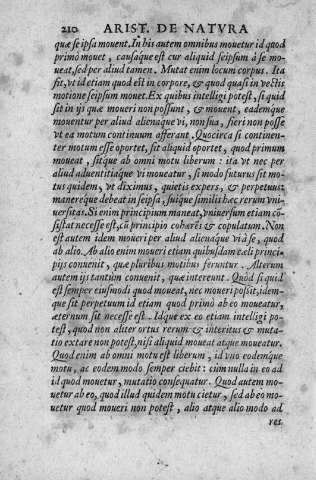 210 ARIST. DE NATVRA
quæ se ipsa mouent. In his autem omnibus mouetur id quod
primò mouet, causaque est cur aliquid seipsum à se mo-
ueat, sed per aliud tamen. Mutat enim locum corpus. Ita
fit, vt id etiam quod est in corpore, & quod quasi in vectis
motione seipsum mouet. Ex quibus intelligi potest, si quid
sit in ijs quæ moueri non possunt, & mouent, eademque
mouentur per aliud alienaque vi, non sua, fieri non posse
vt ea motum continuum afferant. Quocirca si continen-
ter motum esse oportet, sit aliquid oportet, quod primum
moueat, sitque ab omni motu liberum: ita vt nec per
aliud aduentitiaque vi moueatur, si modo futurus sit mo-
tus quidem, vt diximus, quietis expers, & perpetuus:
manereque debeat in seipsa, suique similis hæc rerum vni-
uersitas. Si enim principium maneat, vniuersum etiam co-
sistat necesse est, cū principio cohærēs & copulatum. Non
est autem idem moueri per aliud alienaque vi à se, quod
ab alio. Ab alio enim moueri etiam quibusdam cæli princi-
pijs conuenit, quæ pluribus motibus feruntur. Alterum
autem ijs tantùm conuenit, quæ intereunt. Quòd si quid
est semper eiusmodi quod moueat, nec moueri possit, idem-
que sit perpetuum id etiam quod primò ab eo moueatur,
æternum sit necesse est. Idque ex eo etiam intelligi po-
test, quod non aliter ortus rerum & interitus & muta-
tio extare non potest, nisi aliquid moueat atque moueatur.
Quod enim ab omni motu est liberum, id vno eodemque
motu, ac eodem modo semper ciebit: cùm nulla in eo ad
id quod mouetur, mutatio consequatur. Quod autem mo-
uetur ab eo, quod illud quidem motu cietur, sed ab eo mo-
uetur quod moueri non potest, alio atque alio modo ad
res